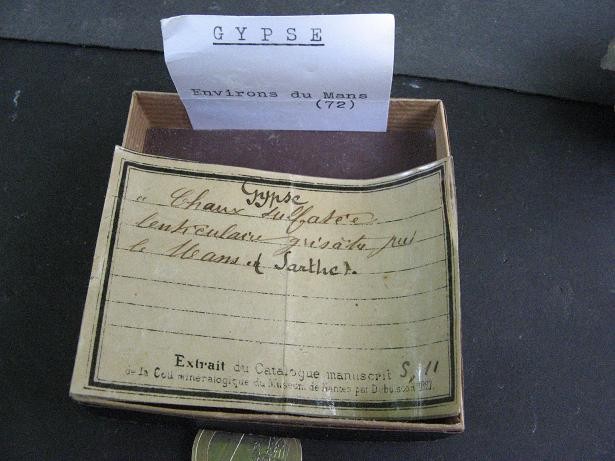 GYPSE
Environs du Mans
(72)
Gypse
" Chaux sulfatée
lenticulaire grisâtre près
le Mans (Sarthe).
Extrait du Catalogue manuscrit S, 11
de la Coll minéralogique du Museum de Nantes par Dubuisson